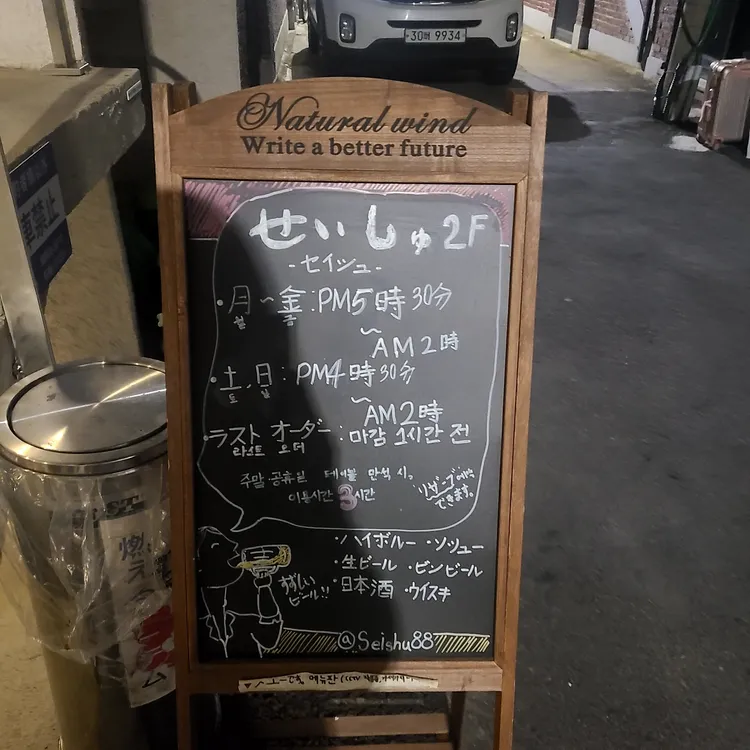 30머 9934
Natural wind
Write a better future
せいしゅ 2F
-セイシュ-
·月~金:PM5時30分
월 금
~AM2時
·土,日:PM4時30分
토 일
~AM2時
·ラストオーダー:마감 1시간 전
라스트 오더
주말·공휴일 테이블 만석 시,
이용시간 3시간
できます。
·ハイボルー ·ソッュー
·生ビール ·ビンビール
·日本酒 ·ウイスキ
ビール!!
@Seishu88
車禁止
燃え